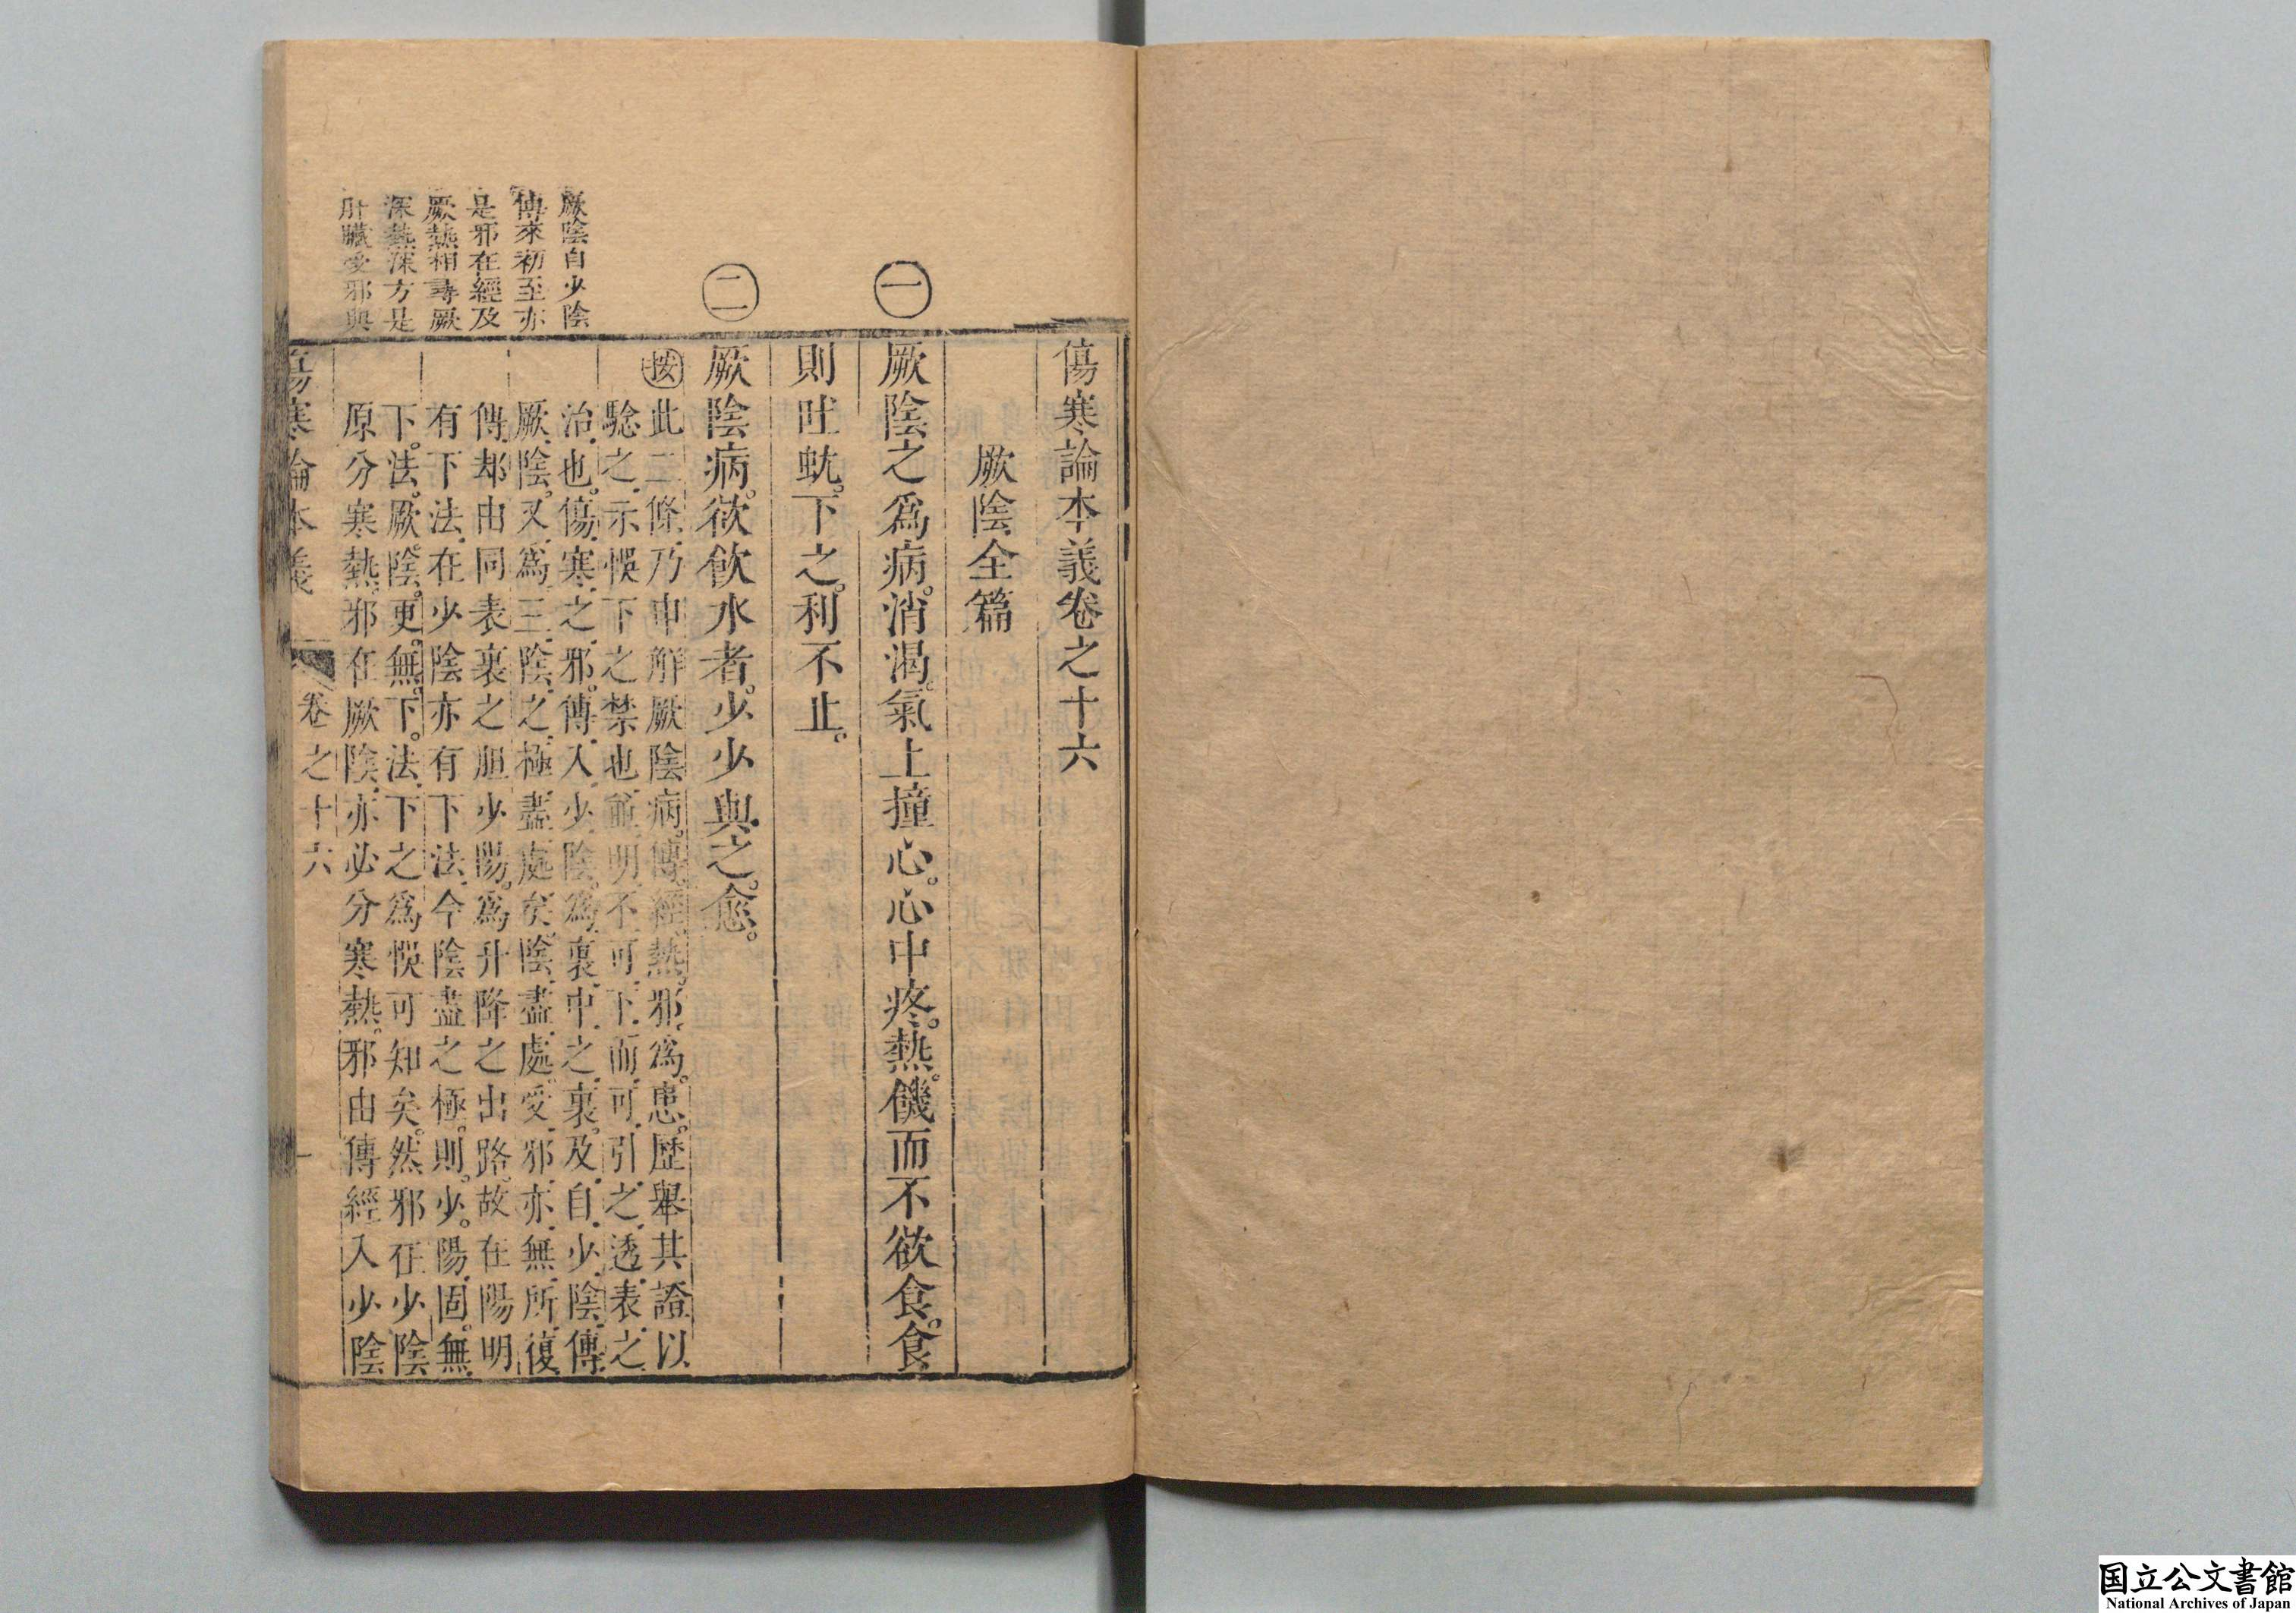 傷寒論本義卷之十六
厥陰全篇
一
厥陰之爲病。消渴。氣上撞心。心中疼。熱。饑而不欲食。食
則吐蚘。下之。利不止。
二
厥陰病。欲飲水者。少少與之。愈。
按
此二條。乃申解厥陰病。傳經熱邪。爲患。歷舉其證以
騐之。示悞下之禁也。並明不可下。而可引之透表之
治也。傷寒之邪。傳入少陰。爲裏中之裏。及自少陰傳
厥陰。又爲三陰之極盡處矣。陰盡處受邪。亦無所復
傳。却由同表裏之胆少陽。爲升降之出路。故在陽明
有下法。在少陰亦有下法。今陰盡之極。則少陽固無
下法。厥陰更無下法。下之爲悞可知矣。然邪在少陰
原分寒熱。邪在厥陰。亦必分寒熱。邪由傳經入少陰
厥陰自少陰
傳來初至亦
是邪在經及
厥熱相尋厥
深熱深方是
肝臟受邪與
傷寒論本義
卷之十六
一
国立公文書館
National Archives of Japan